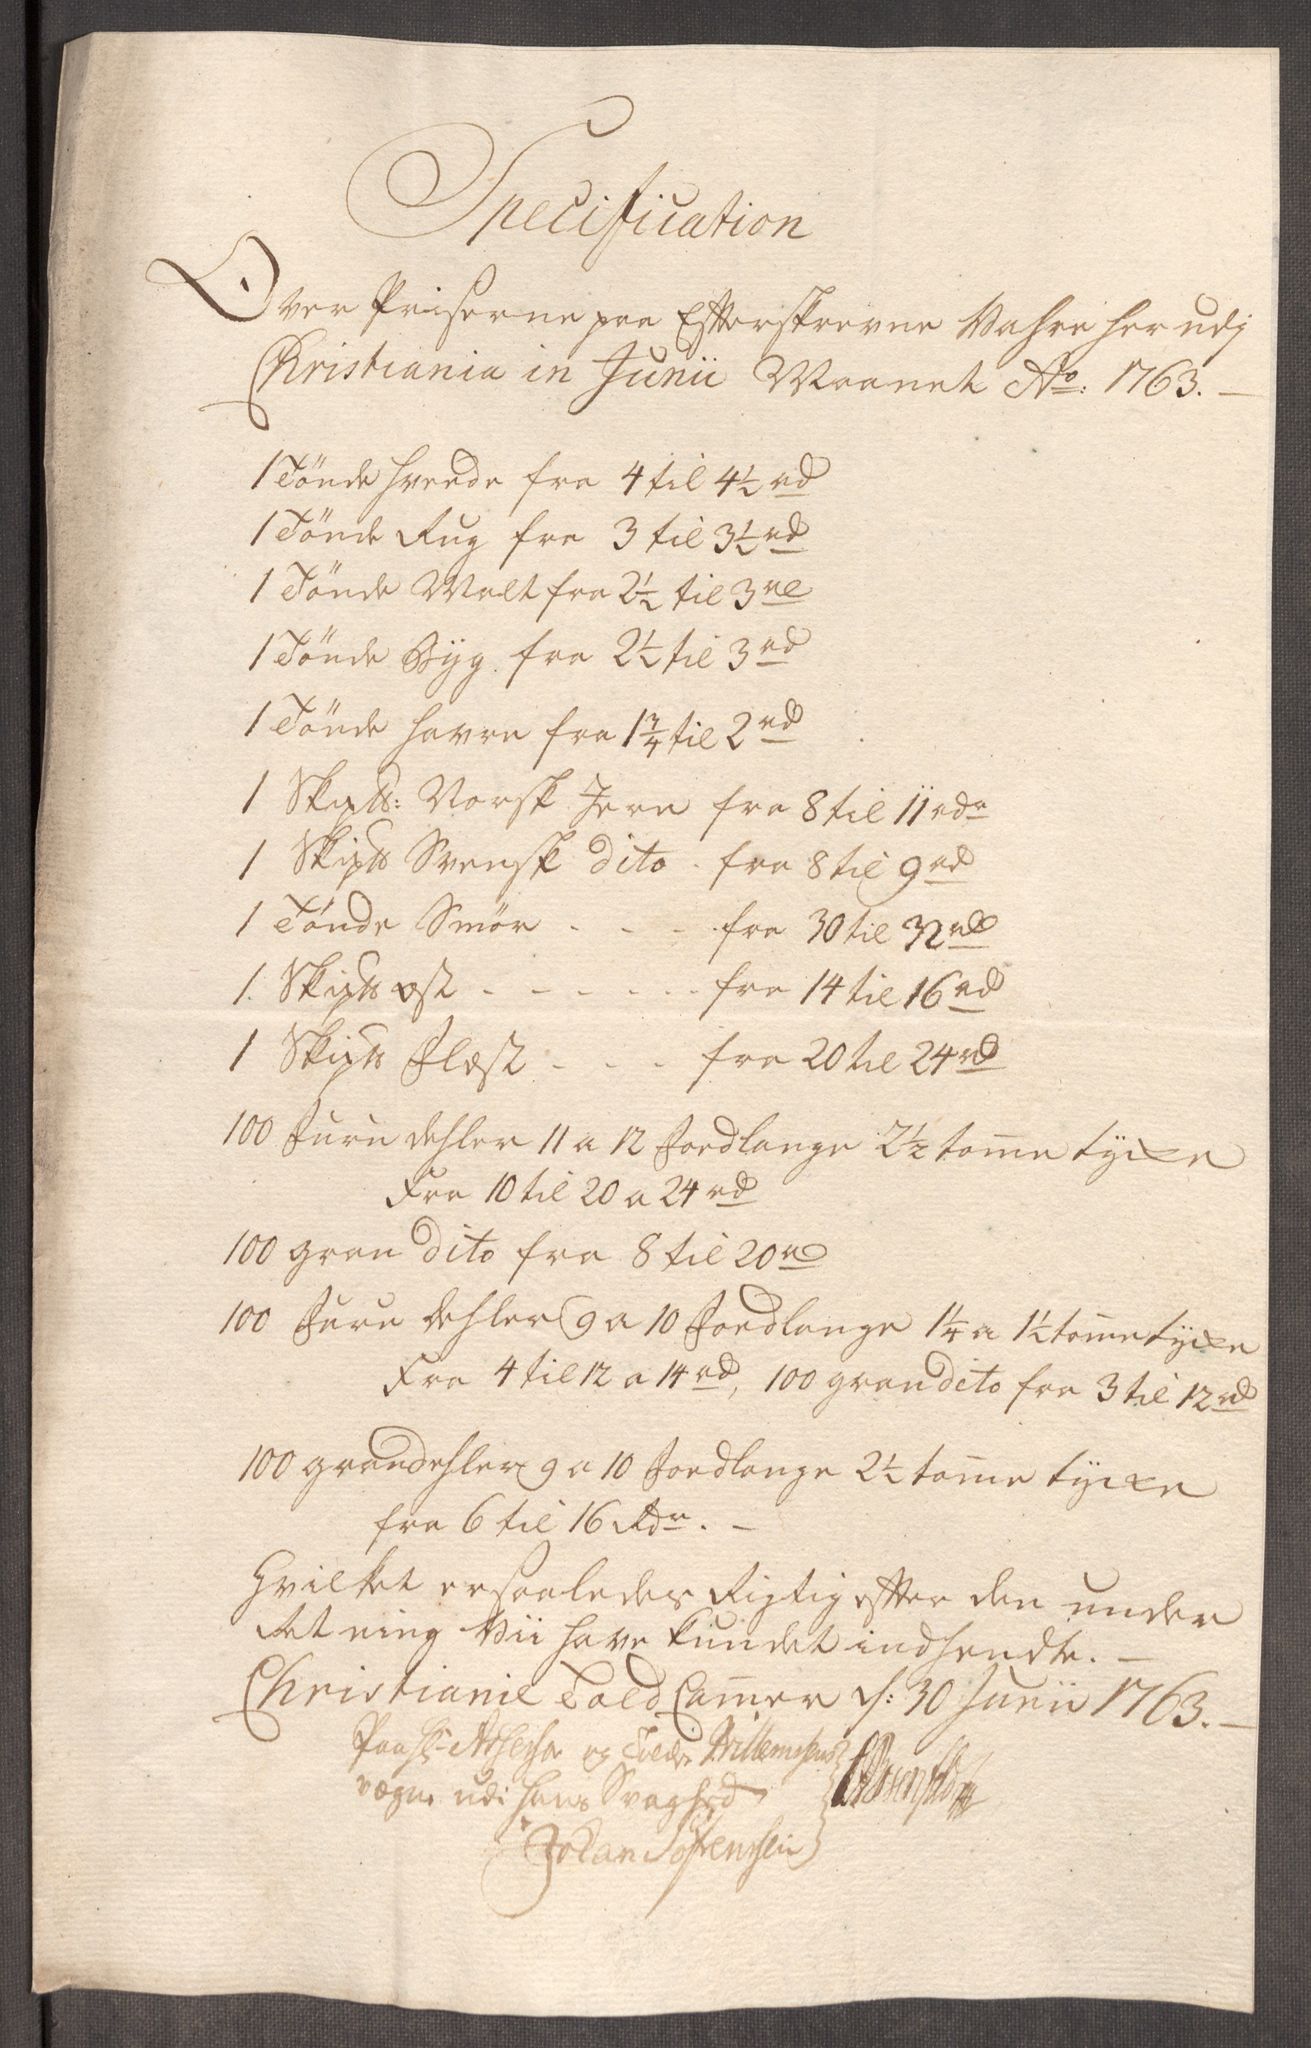 Specification
Over Priserne paa Efterskrevne Vahre her udj
Christiania in Junii Maanet Ao: 1763. —
1 Tönde hvede fra 4 til 4½ rd
1 Tönde Rug fra 3 til 3½ rd
1 Tönde Malt fra 2½ til 3 rd
1 Tönde Byg fra 2½ til 3 rd
1 Tönde havre fra 1¾ til 2 rd
1 Skip℔: Norsk Jern fra 8 til 11 rdr
1 Skip℔ Svensk dito - fra 8 til 9 rd
1 Tönde Smör - - - - fra 30 til 32 rd
1. Skip℔ Ost - - - - - - fra 14 til 16 rd
1 Skip℔ Flesk - - - fra 20 til 24 rd
100 Furu dehler 11 a 12 Foedlange 2½ tomme tycke
Fra 10 til 20 a 24 rd
100 gran dito fra 8 til 20 rd
100 Furu dehler 9 a 10 Foedlange 1¼ a 1½ tomme tycke
Fra 4 til 12 a 14 rd, 100 gran dito fra 3 til 12 rd
100 grandehler 9 a 10 Foedlange 2½ tomme tycke
fra 6 til 16 Rdr. —
Hvilket er saaledes Rigtig efter den under
Retning Vii have kundet indhendte. —
Christianie Told Cammer d: 30 Junii 1763. —
og Willemsens
vegne udi hans Svaghed
Johan Sörensen